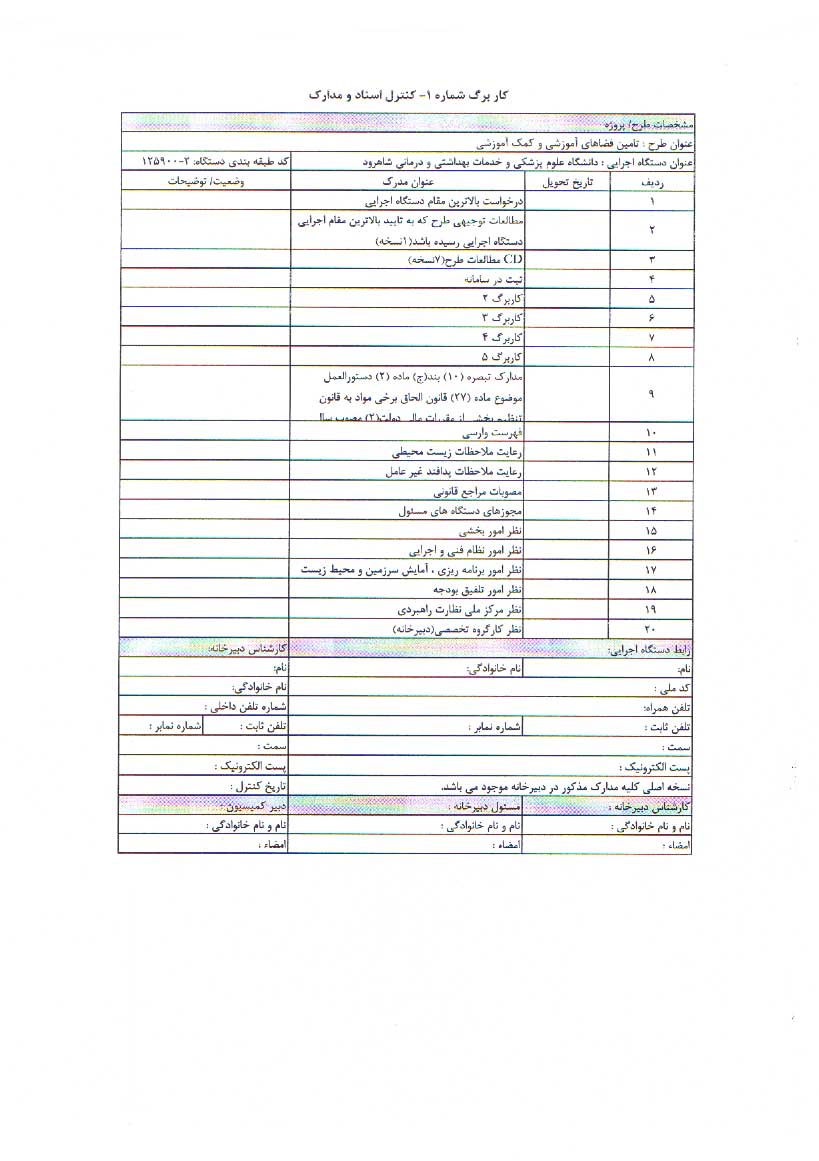 کار برگ شماره ۱- کنترل اسناد و مدارک
مشخصات طرح/ پروژه
عنوان طرح : تامین فضاهای آموزشی و کمک آموزشی
عنوان دستگاه اجرایی : دانشگاه علوم پزشکی و خدمات بهداشتی و درمانی شاهرود کد طبقه بندی دستگاه: ۳-۱۲۵۹۰۰
ردیف عنوان مدرک تاریخ تحویل وضعیت/ توضیحات
۱ درخواست بالاترین مقام دستگاه اجرایی
۲ مطالعات توجیهی طرح که به تایید بالاترین مقام اجرایی
دستگاه اجرایی رسیده باشد(۱نسخه)
۳ CD مطالعات طرح(۷نسخه)
۴ ثبت در سامانه
۵ کاربرگ ۲
۶ کاربرگ ۳
۷ کاربرگ ۴
۸ کاربرگ ۵
۹ مدارک تبصره (۱۰) بند(ج) ماده (۲) دستورالعمل
موضوع ماده (۲۷) قانون الحاق برخی مواد به قانون
تنظیم بخشی از مقررات مالی دولت(۲) مصوب سال
۱۰ فهرست وارسی
۱۱ رعایت ملاحظات زیست محیطی
۱۲ رعایت ملاحظات پدافند غیر عامل
۱۳ مصوبات مراجع قانونی
۱۴ مجوزهای دستگاه های مسئول
۱۵ نظر امور بخشی
۱۶ نظر امور نظام فنی و اجرایی
۱۷ نظر امور برنامه ریزی ، آمایش سرزمین و محیط زیست
۱۸ نظر امور تلفیق بودجه
۱۹ نظر مرکز ملی نظارت راهبردی
۲۰ نظر کارگروه تخصصی(دبیرخانه)
رابط دستگاه اجرایی: کارشناس دبیرخانه:
نام: نام خانوادگی: نام:
کد ملی : نام خانوادگی:
تلفن همراه: شماره تلفن داخلی :
تلفن ثابت : شماره نمابر : تلفن ثابت : شماره نمابر :
سمت : سمت :
پست الکترونیک : پست الکترونیک :
نسخه اصلی کلیه مدارک مذکور در دبیرخانه موجود می باشد. تاریخ کنترل :
کارشناس دبیرخانه : مسئول دبیرخانه : دبیر کمیسیون :
نام و نام خانوادگی : نام و نام خانوادگی : نام و نام خانوادگی :
امضاء : امضاء : امضاء :